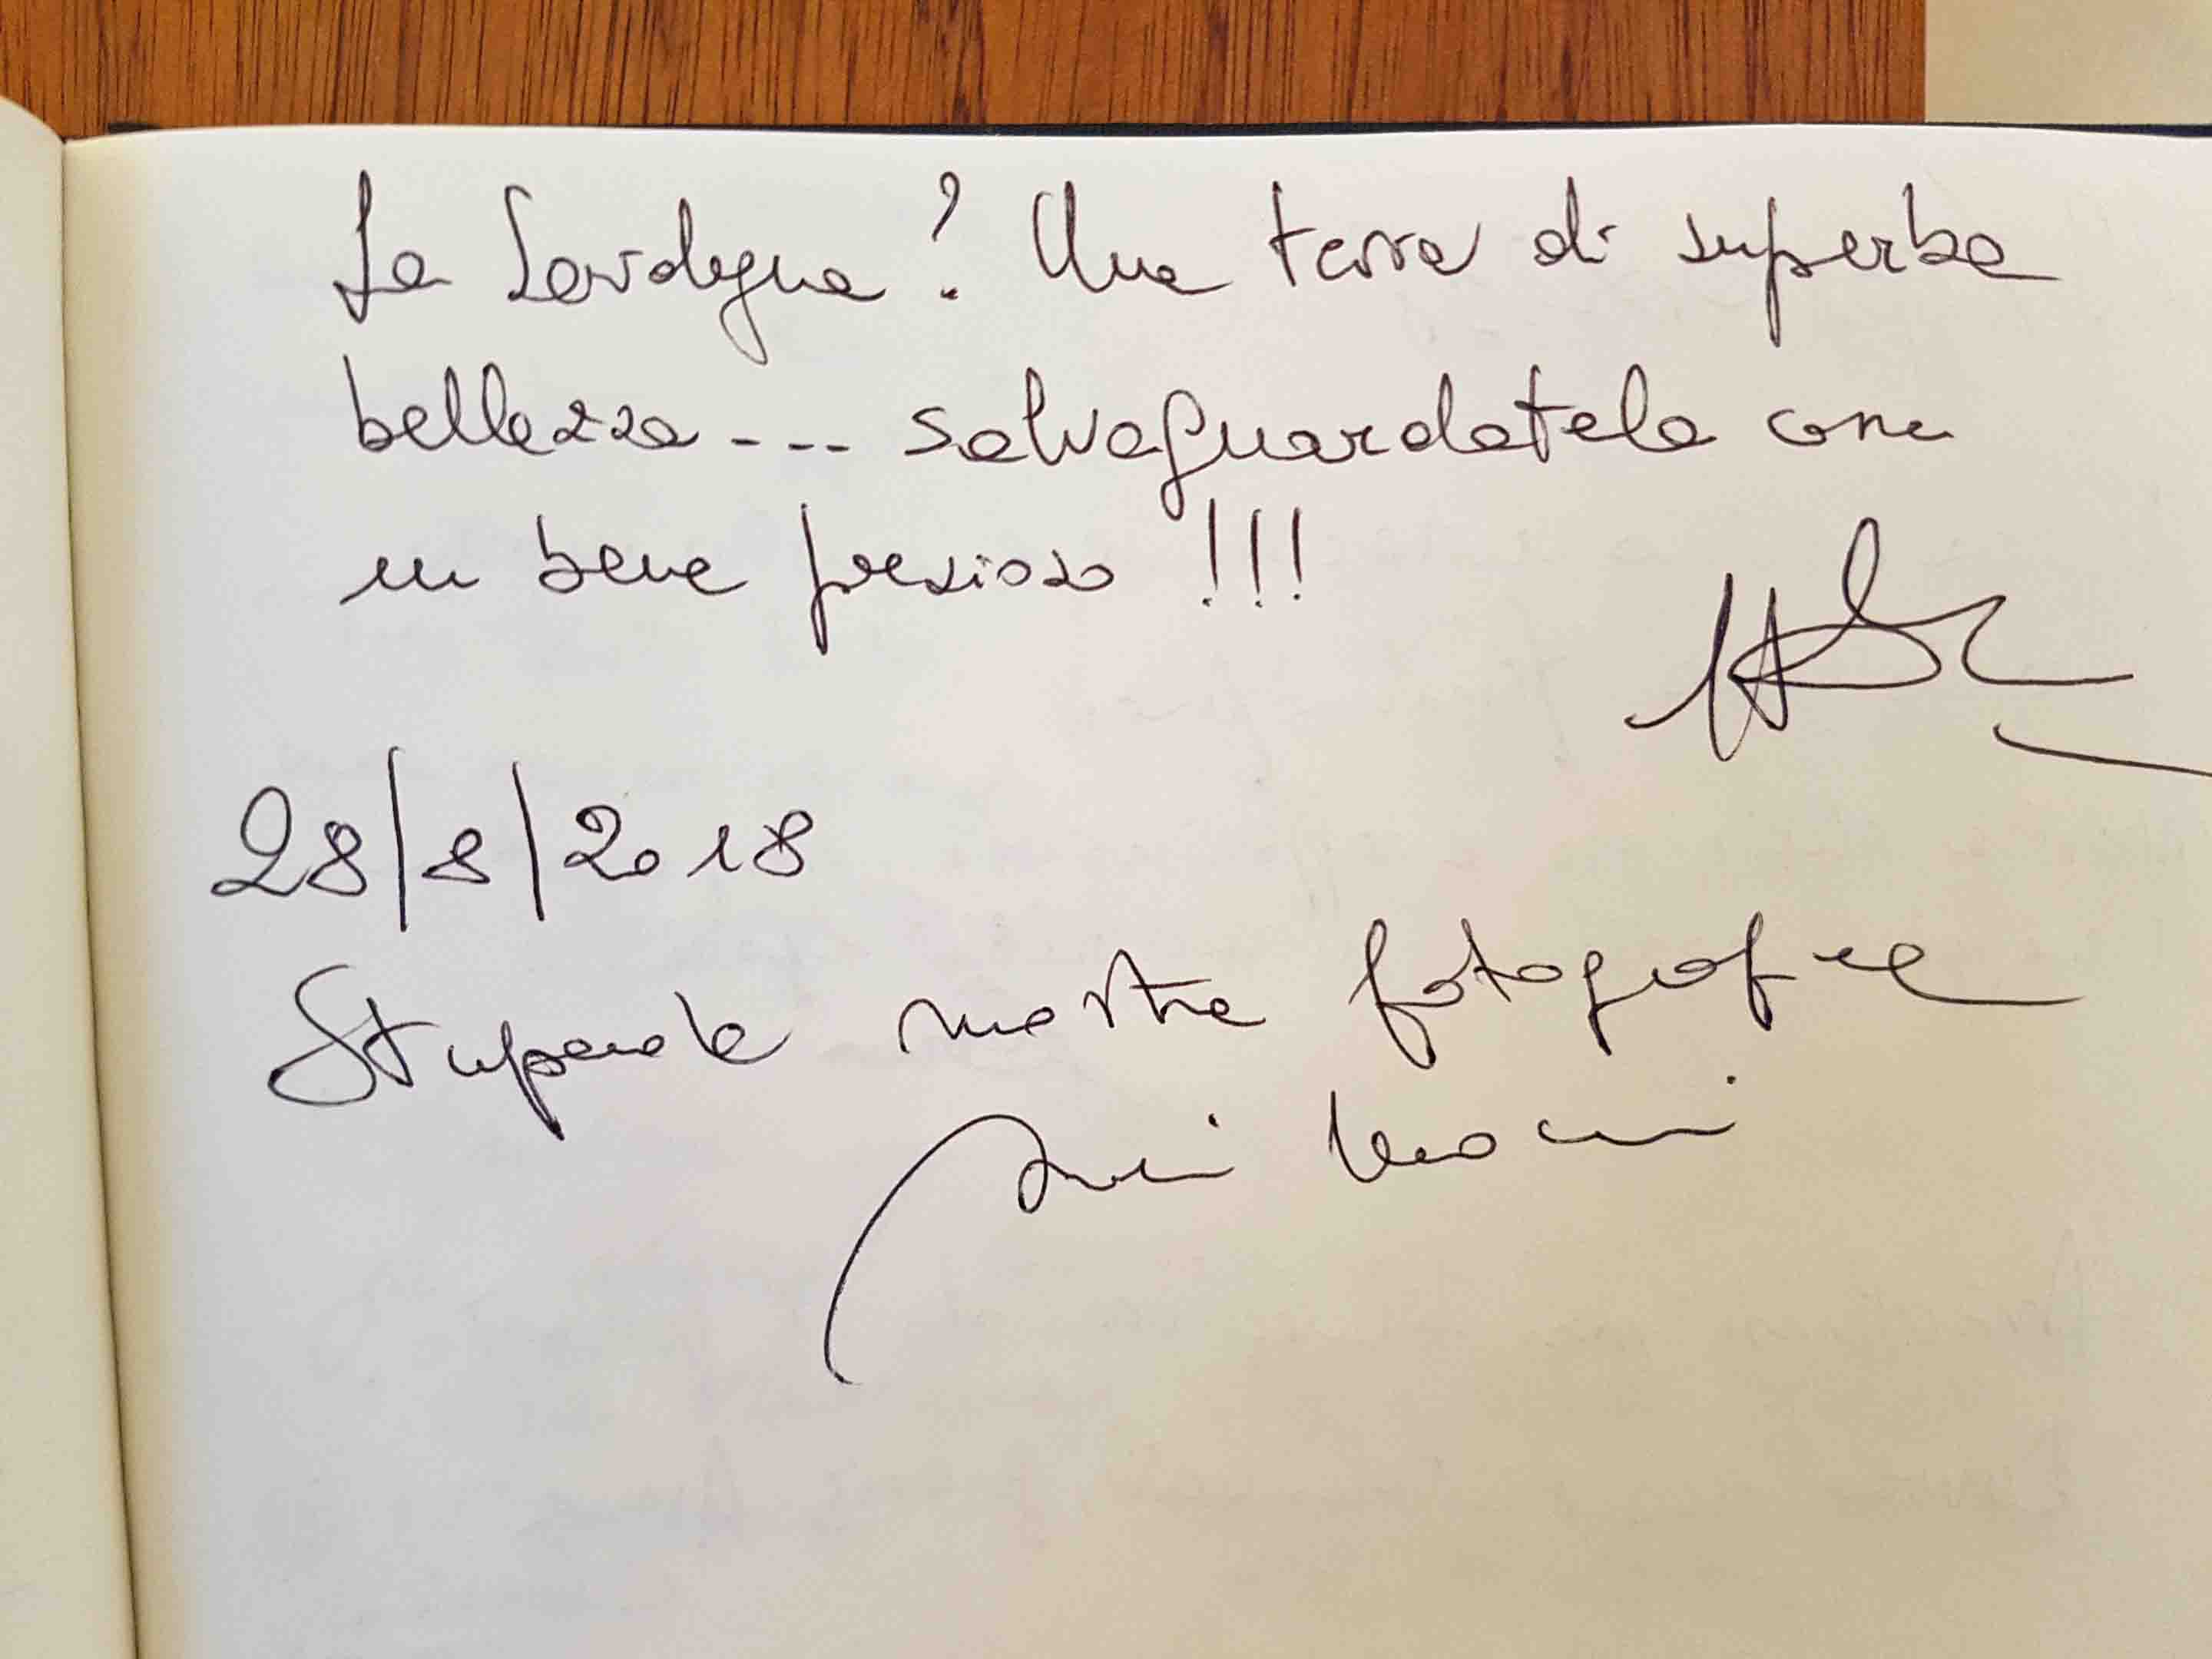 La Sardegna? Una terra di superba
bellezza --- salvaguardatela come
un bene prezioso!!!
28/8/2018
Stupenda mostra fotografica